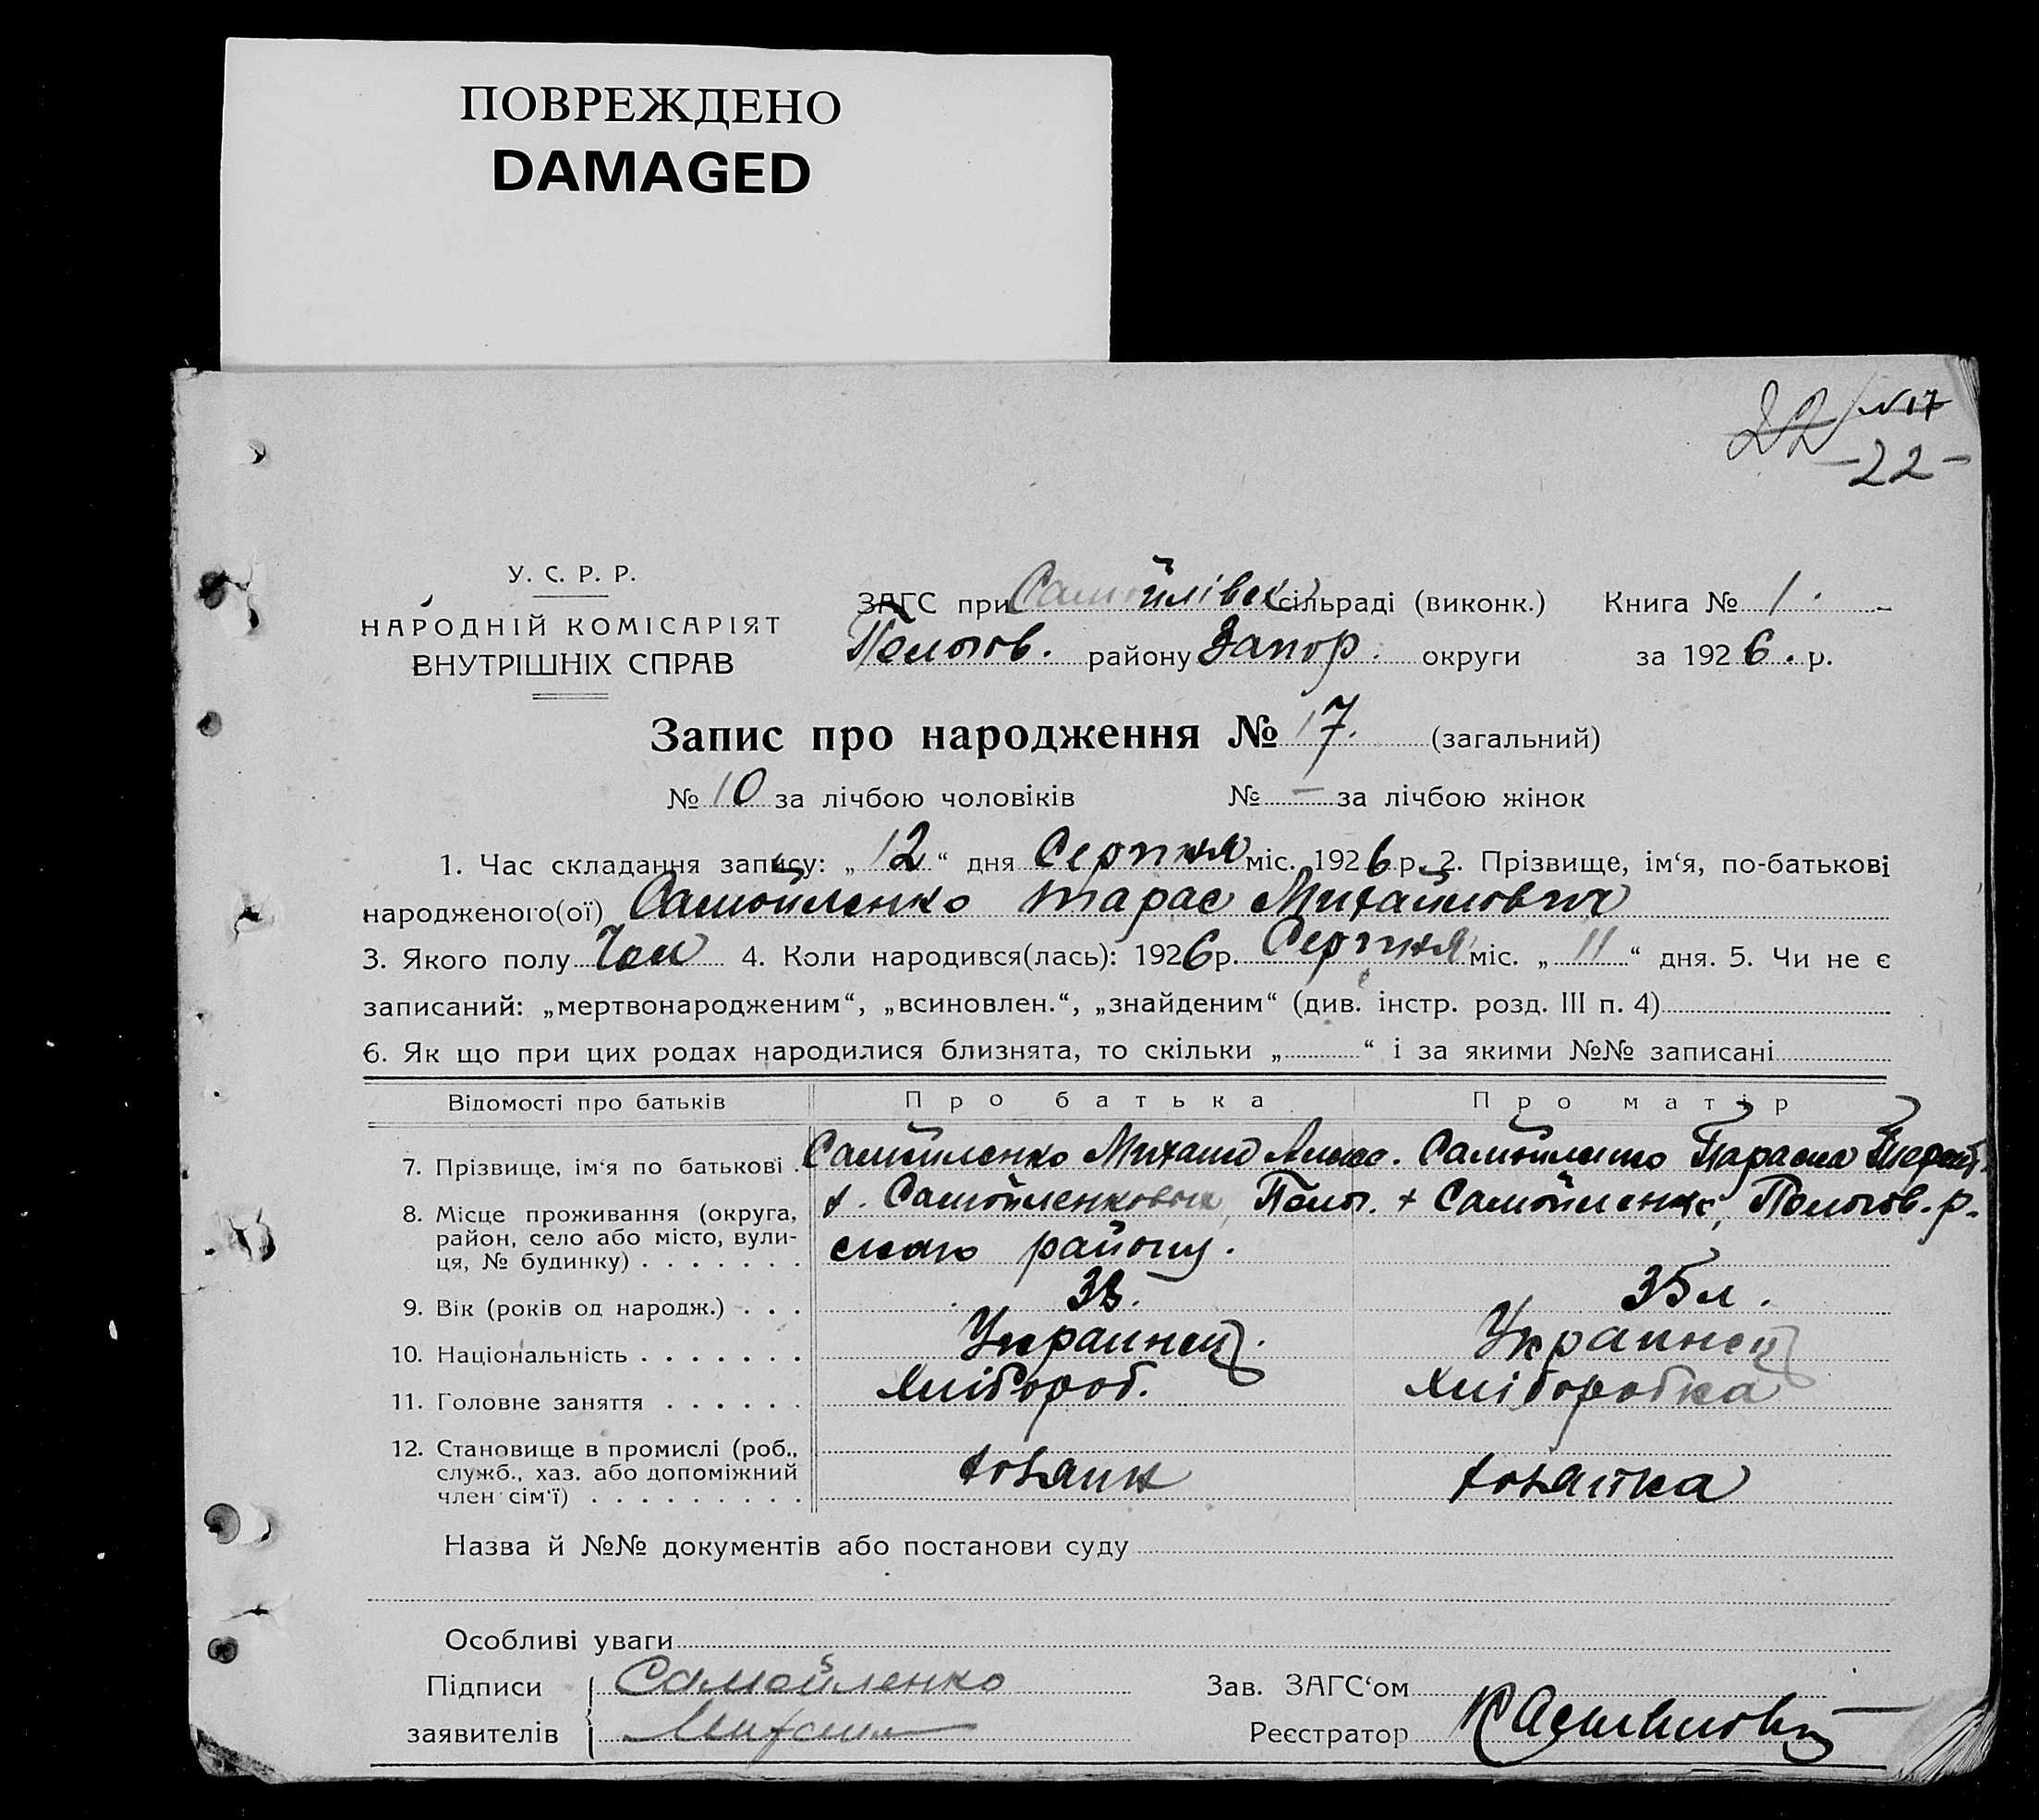 ПОВРЕЖДЕНО
DAMAGED
22 №17
-22-
У. С. Р. Р.
НАРОДНІЙ КОМІСАРІЯТ
ВНУТРІШНІХ СПРАВ
ЗАГС при Самойлівск сільраді (виконк.) Книга № 1.
Пологов. району Запор. округи за 1926. р.
Запис про народження № 17. (загальний)
№ 10 за лічбою чоловіків № — за лічбою жінок
1. Час складання запису: „12“ дня Серпня міс. 1926 р. 2. Прізвище, ім‘я, по-батькові
народженого(ої) Самойленко Тарас Михайлович
3. Якого полу Чол 4. Коли народився(лась): 1926 р. Серпня міс. „11“ дня. 5. Чи не є
записаний: „мертвонародженим“, „всиновлен.“, „знайденим“ (див. інстр. розд. III п. 4)
6. Як що при цих родах народилися близнята, то скільки „ “ і за якими №№ записані
Відомості про батьків Про батька Про матір
7. Прізвище, ім‘я по батькові . Самойленко Михайло Самойленко Параска
8. Місце проживання (округа, х. Самойленков Полог. х Самойленк Пологов. р.
район, село або місто, вули- ського району.
ця, № будинку) . . . . . . .
9. Вік (років од народж.) . . . 38. 35 л.
10. Національність . . . . . . . Украинец. Украинец
11. Головне заняття . . . . . . Хлібороб. Хліборобка
12. Становище в промислі (роб.,
служб., хаз. або допоміжний хозяин хозяйка
член сім‘ї) . . . . . . . . .
Назва й №№ документів або постанови суду
Особливі уваги
Підписи Самойленко Зав. ЗАГС‘ом
заявителів Михайло Реєстратор